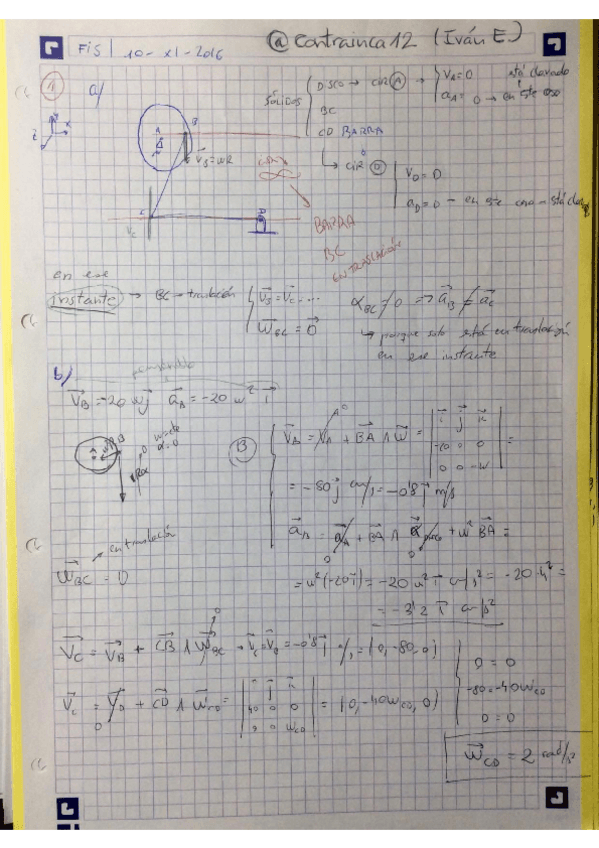 FIS | 10-XI-2016
@contrainca12 (Iván E.)
1 a)
SÓLIDOS
DISCO → CIR A → V_A = 0 está clavado
a_A = 0 → en este caso
BC
CD BARRA
↳ CIR D
V_D = 0
a_D = 0 - en este caso - está
V_B = ωR
V_C
BARRA
BC
EN TRASLACIÓN
en ese
instante → BC → traslación { V_B = V_C = ...
ω_BC = 0
α_BC ≠ 0 => a_B ≠ a_C
↳ porque solo está en traslación
en ese instante
b)
V_B = -20 ω j a_B = -20 ω² i
B
V_B = V_A + BA ∧ ω = | i j k | -20 0 0 | 0 0 -ω | =
= -80 j cm/s = -0'8 j m/s
a_B = a_A + BA ∧ α + ω² BA =
= ω²(-20 i) = -20 ω² i cm/s² = -20·4² =
= -3'2 i m/s²
en traslación
ω_BC = 0
V_C = V_B + CB ∧ ω_BC → V_C = V_B = -0'8 j m/s = (0, -80, 0)
V_C = V_D + CD ∧ ω_CD = | i j k | 40 0 0 | 0 0 ω_CD | = (0, -40ω_CD, 0)
0 = 0
-80 = -40ω_CD
0 = 0
ω_CD = 2 rad/s